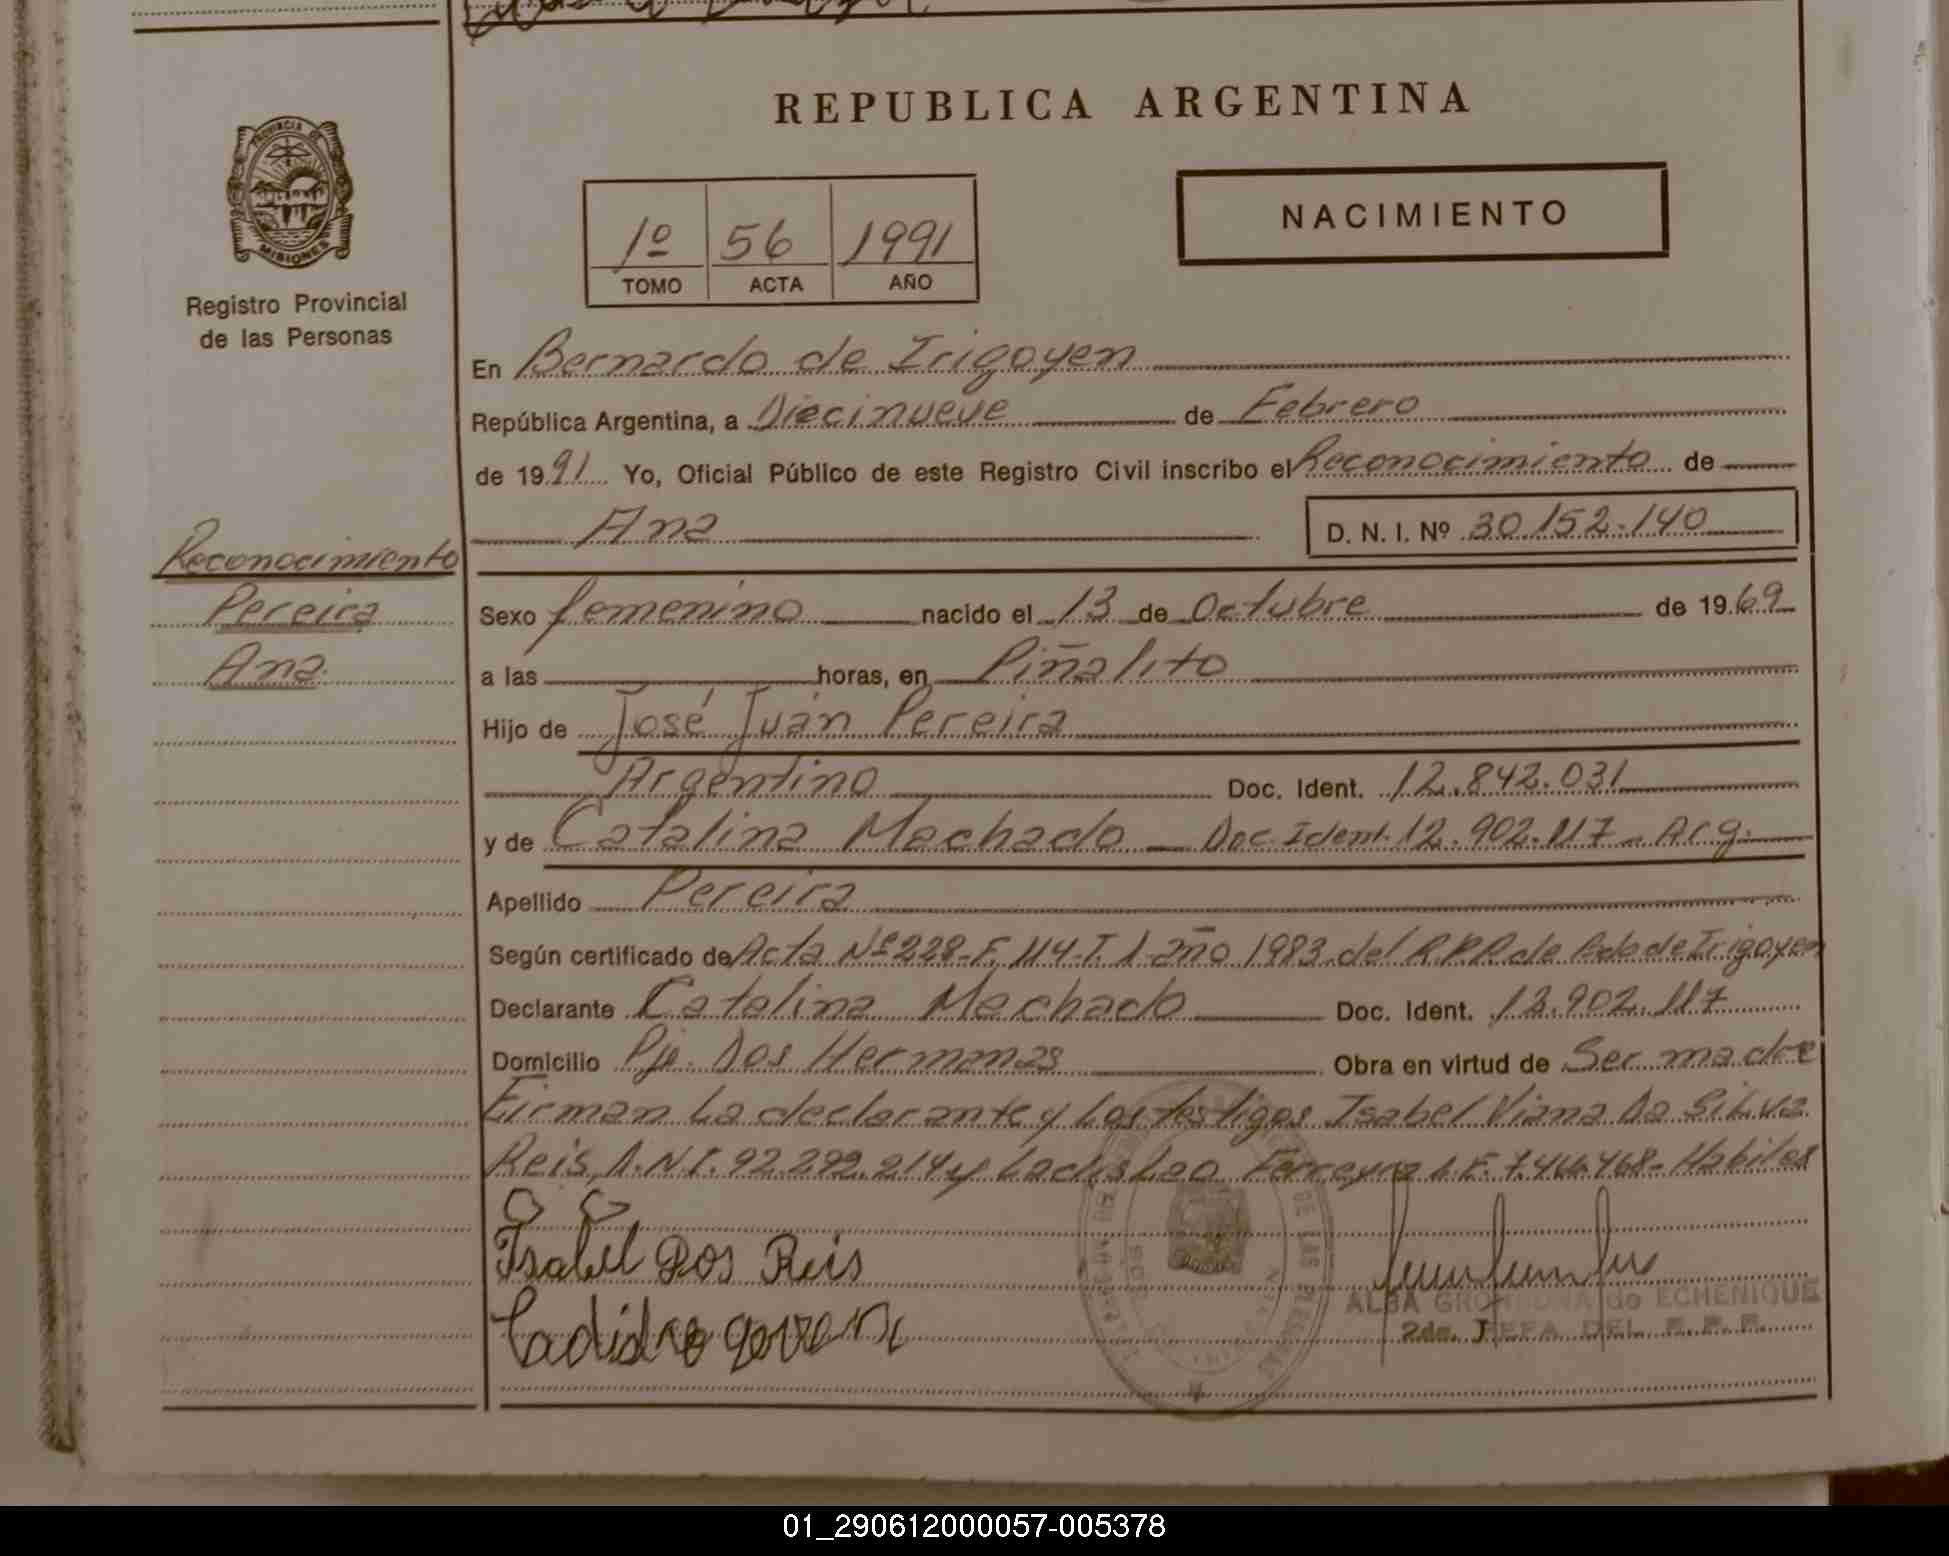 PROVINCIA DE
MISIONES
Registro Provincial
de las Personas
Reconocimiento
Pereira
Ana
REPUBLICA ARGENTINA
1º 56 1991
TOMO ACTA AÑO
NACIMIENTO
En Bernardo de Irigoyen
República Argentina, a Diecinueve de Febrero
de 1991 Yo, Oficial Público de este Registro Civil inscribo el Reconocimiento de
Ana D. N. I. Nº 30.152.140
Sexo femenino nacido el 13 de Octubre de 1969
a las horas, en Piñalito
Hijo de José Juan Pereira
Argentino Doc. Ident. 12.842.031
y de Catalina Machado Doc. Ident. 12.902.117 - Arg.
Apellido Pereira
Según certificado de Acta Nº 228-F. 114-T. 1-año 1983 del R.P.P. de Bdo de Irigoyen
Declarante Catalina Machado Doc. Ident. 12.902.117
Domicilio Pje. Dos Hermanas Obra en virtud de Ser madre
Firman La declarante y Los testigos Isabel Viana Da Silva
Reis D.N.I. 92.292.214 y Ladislao Ferreyra L.E. 7.466.468 - Habiles
Isabel Dos Reis
ALBA de ECHENIQUE
2da. JEFA DEL R. P. P.
01_290612000057-005378